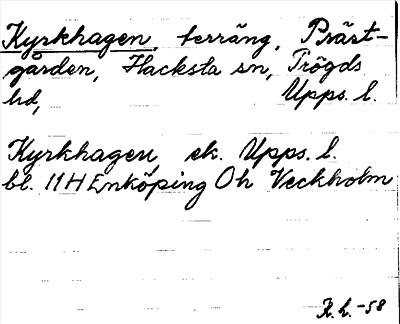 Kyrkhagen, terräng, Präst-
gården, Hacksta sn, Trögds
hd, Upps. l.
Kyrkhagen, ek. Upps. l.
bl. 11 H Enköping Oh Veckholm
R. h. -58